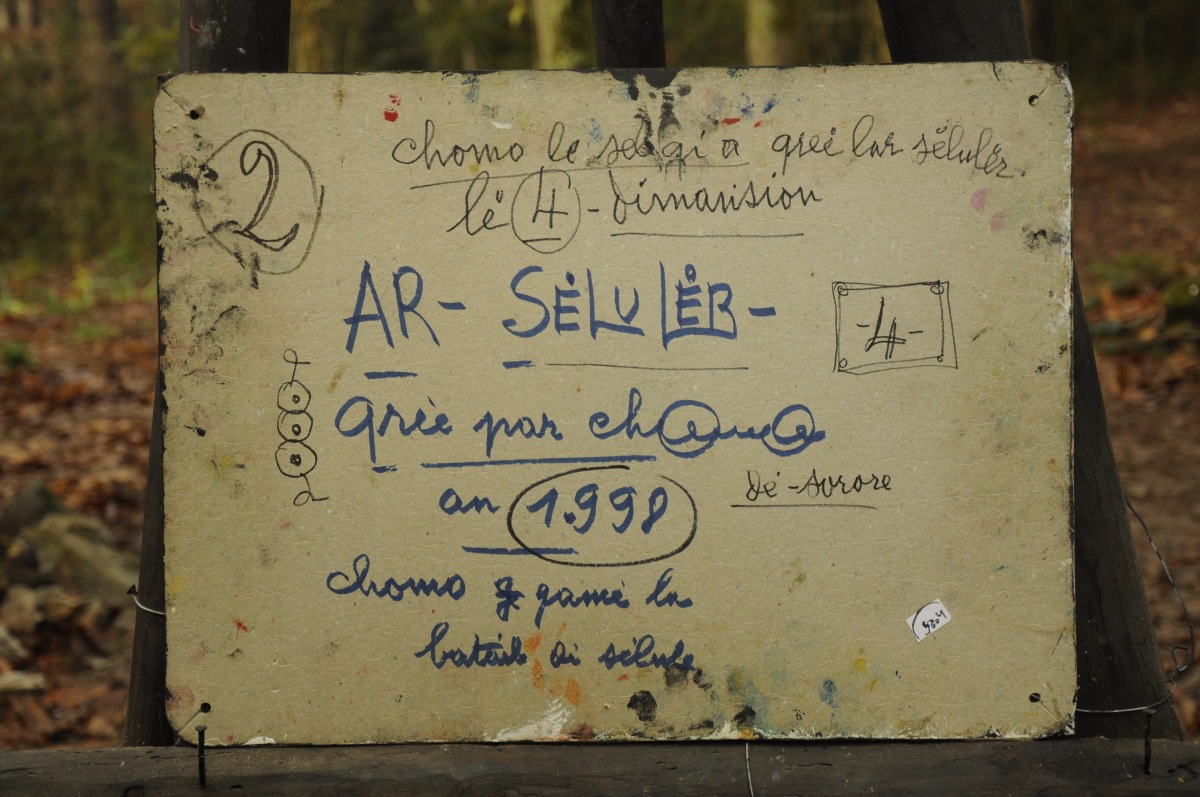 2
chomo le sel qi a greé lar sélulér
lé 4 - dimansion
AR - SÉLULÉR -
- 4 -
grée par chomo
an 1.998
dé-sorore
chomo gamé la
batail di sélule